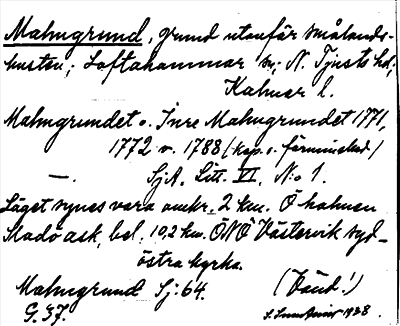 Malmgrund, grund utanför smålands-
kusten; Loftahammar sn; N. Tjusts hd;
Kalmar l.
Malmgrundet o. Inre Malmgrundet 1771,
1772 o. 1788 (kop. i förminskad)
—. SjA. Litt. VI. N:o 1.
Läget synes vara omkr. 2 km. Ö holmen
Sladö ask, bel. 10,2 km. ÖNÖ Västervik syd-
östra kyrka.
Malmgrund Sj: 64. (Vänd!)
G. 37. 1938